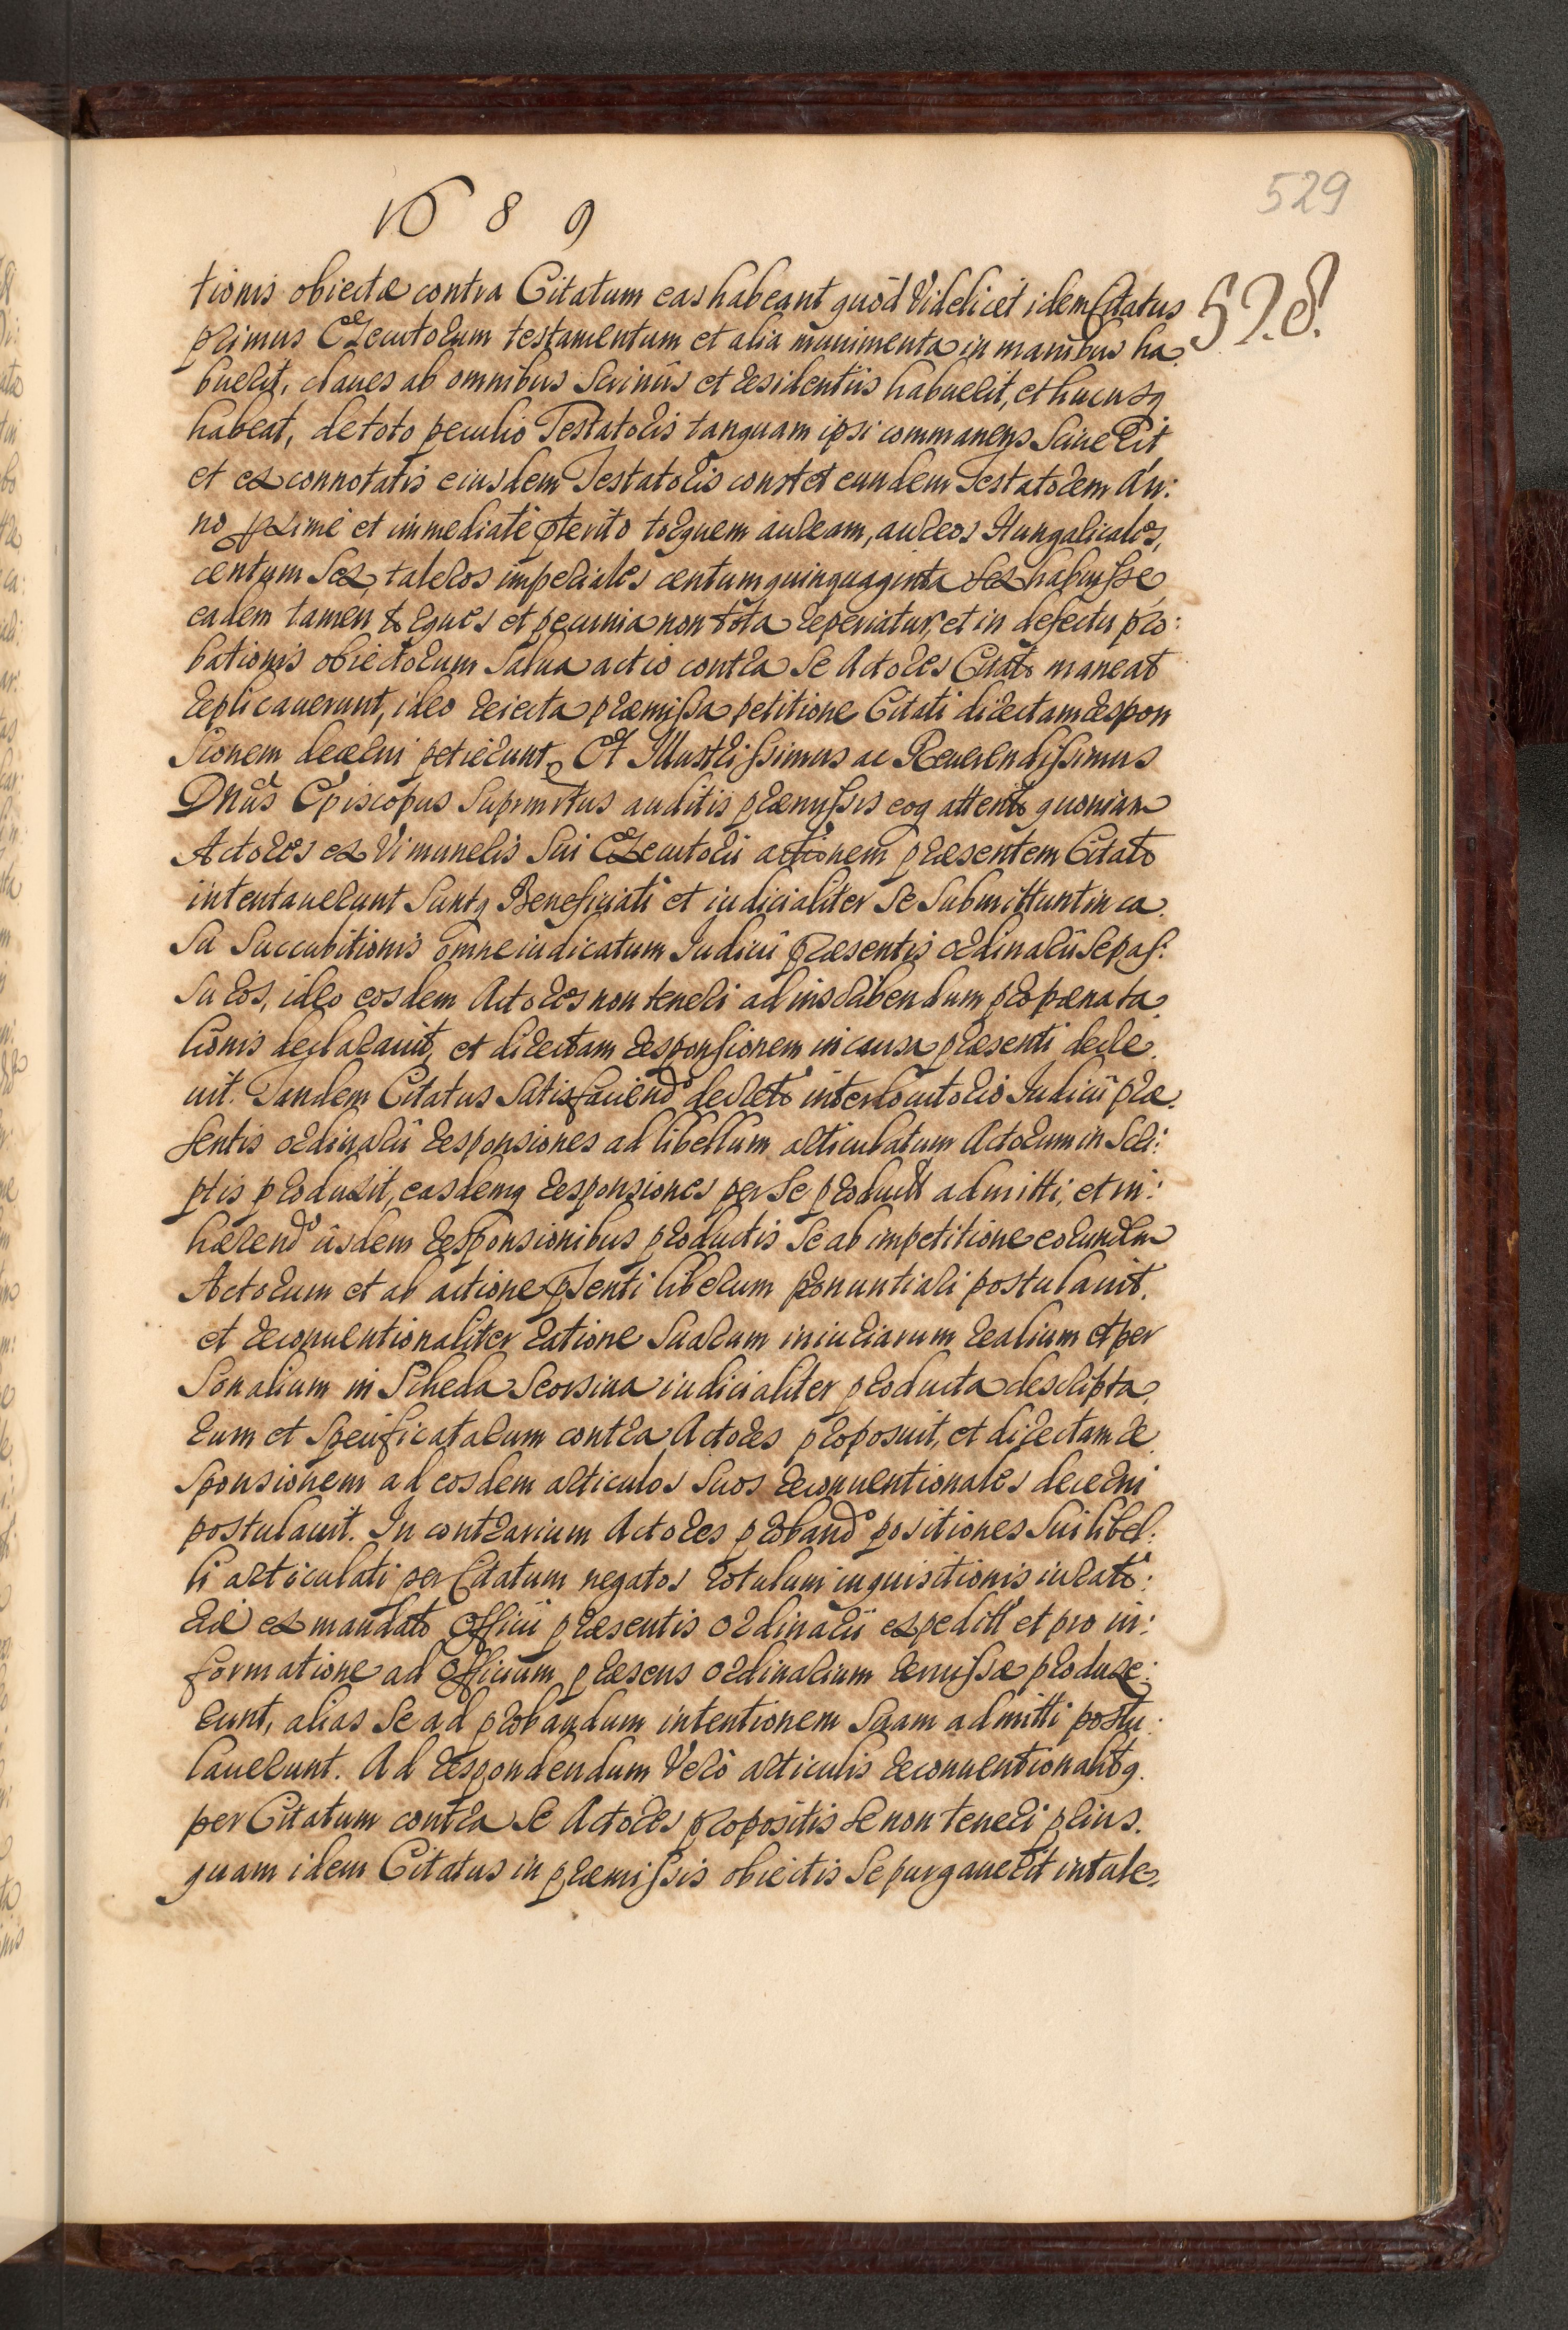 529
1689
528.
tionis obiectæ contra Citatum eas habeant quòd Videlicet idem Citatus
primus Executorum testamentum et alia munimenta in manibus ha,
buerit, claues ab omnibus Scriniis et residentiis habuerit, et hucusq
habeat, de toto peculio Testatoris tanquam ipsi commanens Sciuerit,
et ex connotatis eiusdem Testatoris constet eundem Testatorem An:
no proxime et immediatè pterito torquem auream, aureos Hungaricales,
centum Sex, taleros imperiales centum quinquaginta Sex habuisse,
eadem tamen torques et pecunia non tota reperiatur, et in defectu pro:
bationis obiectorum Salua actio contra Se Actores Citato maneat
replicauerunt, ideo reiecta præmissa petitione Citati directam respon
sionem decerni petierunt. Et Illustrissimus ac Reuerendissimus
Dnus Episcopus Suprinvtus auditis præmissis eoq attento quoniam
Actores ex Vi muneris Sui Executorii actionem præsentem Citato
intentauerunt Suntq Beneficiati et iudicialiter Se Submittunt in ca,
su Succubitionis omne iudicatum Iudicii præsentis ordinarii Se pas:
suros, ideo eosdem Actores non teneri ad inscribendum pro pœna ta,
lionis declarauit, et directam responsionem in causa præsenti decre,
uit. Tandem Citatus Satisfaciendo decreto interlocutorio Iudicii præ,
sentis ordinarii responsiones ad libellum articulatum Actorum in Scri:
ptis produxit, easdemq responsiones per Se productas admitti, et in:
hærendo iisdem responsionibus productis Se ab impetitione eorundem
Actorum et ab actione psenti liberum pronuntiari postulauit,
et reconuentionaliter ratione Suarum iniuriarum realium et per
sonalium in Scheda Seorsiua iudicialiter producta descripta,
rum et Specificatarum contra Actores proposuit, et directam re,
sponsionem ad eosdem articulos Suos reconuentionales decerni
postulauit. In contrarium Actores probando positiones Sui libel:
li articulati per Citatum negatos rotulum inquisitionis iurato:
riæ ex mandato Officii præsentis Ordinarii expeditæ et pro in:
formatione ad Officium præsens Ordinarium remissæ produxe:
runt, alias Se ad probandum intentionem Suam admitti postu:
lauerunt. Ad respondendum Verò articulis reconuentionalibq.
per Citatum contra Se Actores propositis Se non teneri prius.
quam idem Citatus in præmissis obiectis Se purgauerit intule,